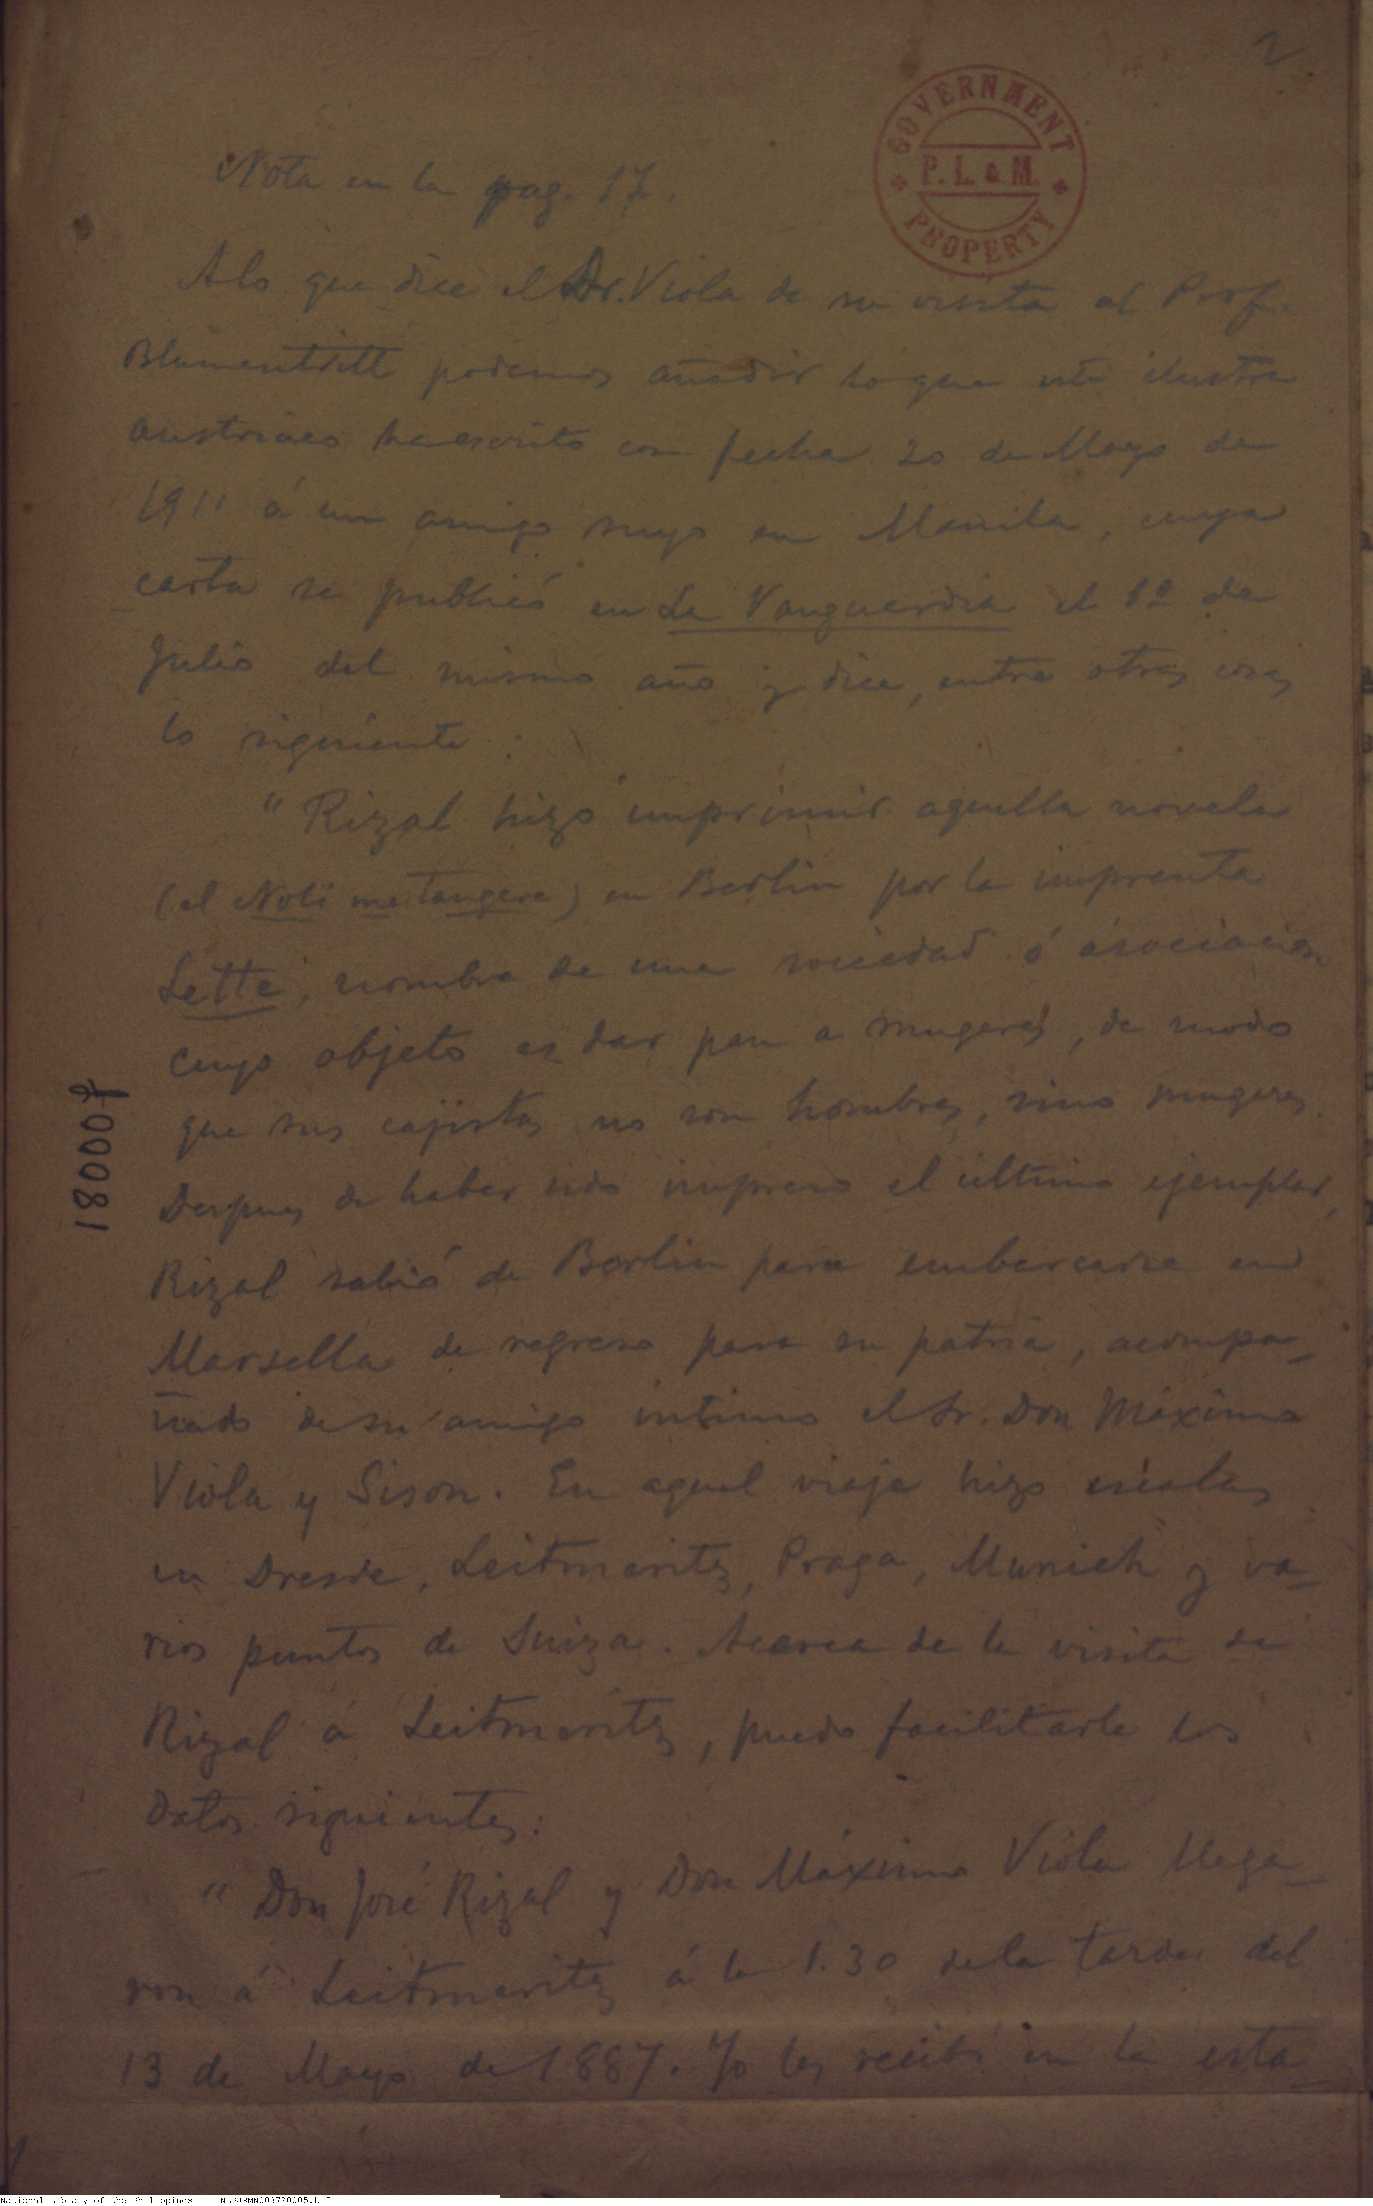 2
GOVERNMENT
P. L. & M.
PROPERTY
Nota en la pag. 17.
A lo que dice el Dr. Viola de su visita al Prof.
Blumentritt podemos añadir lo que este ilustre
austriaco ha escrito con fecha 20 de Mayo de
1911 á un amigo suyo en Manila, cuya
carta se publicó en La Vanguardia el 1º de
Julio del mismo año y dice, entre otras cosas
lo siguiente:
"Rizal hizo imprimir aquella novela
(el Noli me tangere) en Berlin por la imprenta
Lette, nombre de una sociedad ó asociación
cuyo objeto es dar pan a mugeres, de modo
que sus cajistas no son hombres, sino mugeres.
Despues de haber sido impreso el ultimo ejemplar,
Rizal salió de Berlin para embarcarse en
Marsella de regreso para su patria, acompa-
ñado de su amigo intimo el Sr. Don Máximo
Viola y Sison. En aquel viaje hizo escalas
en Dresde, Leitmeritz, Praga, Munich y va-
rios puntos de Suiza. Acerca de la visita de
Rizal á Leitmeritz, puedo facilitarle los
datos siguientes:
"Don José Rizal y Don Máximo Viola llega-
ron á Leitmeritz á la 1.30 de la tarde del
13 de Mayo de 1887. Yo les recibí en la esta-
18000
National Library of the Philippines